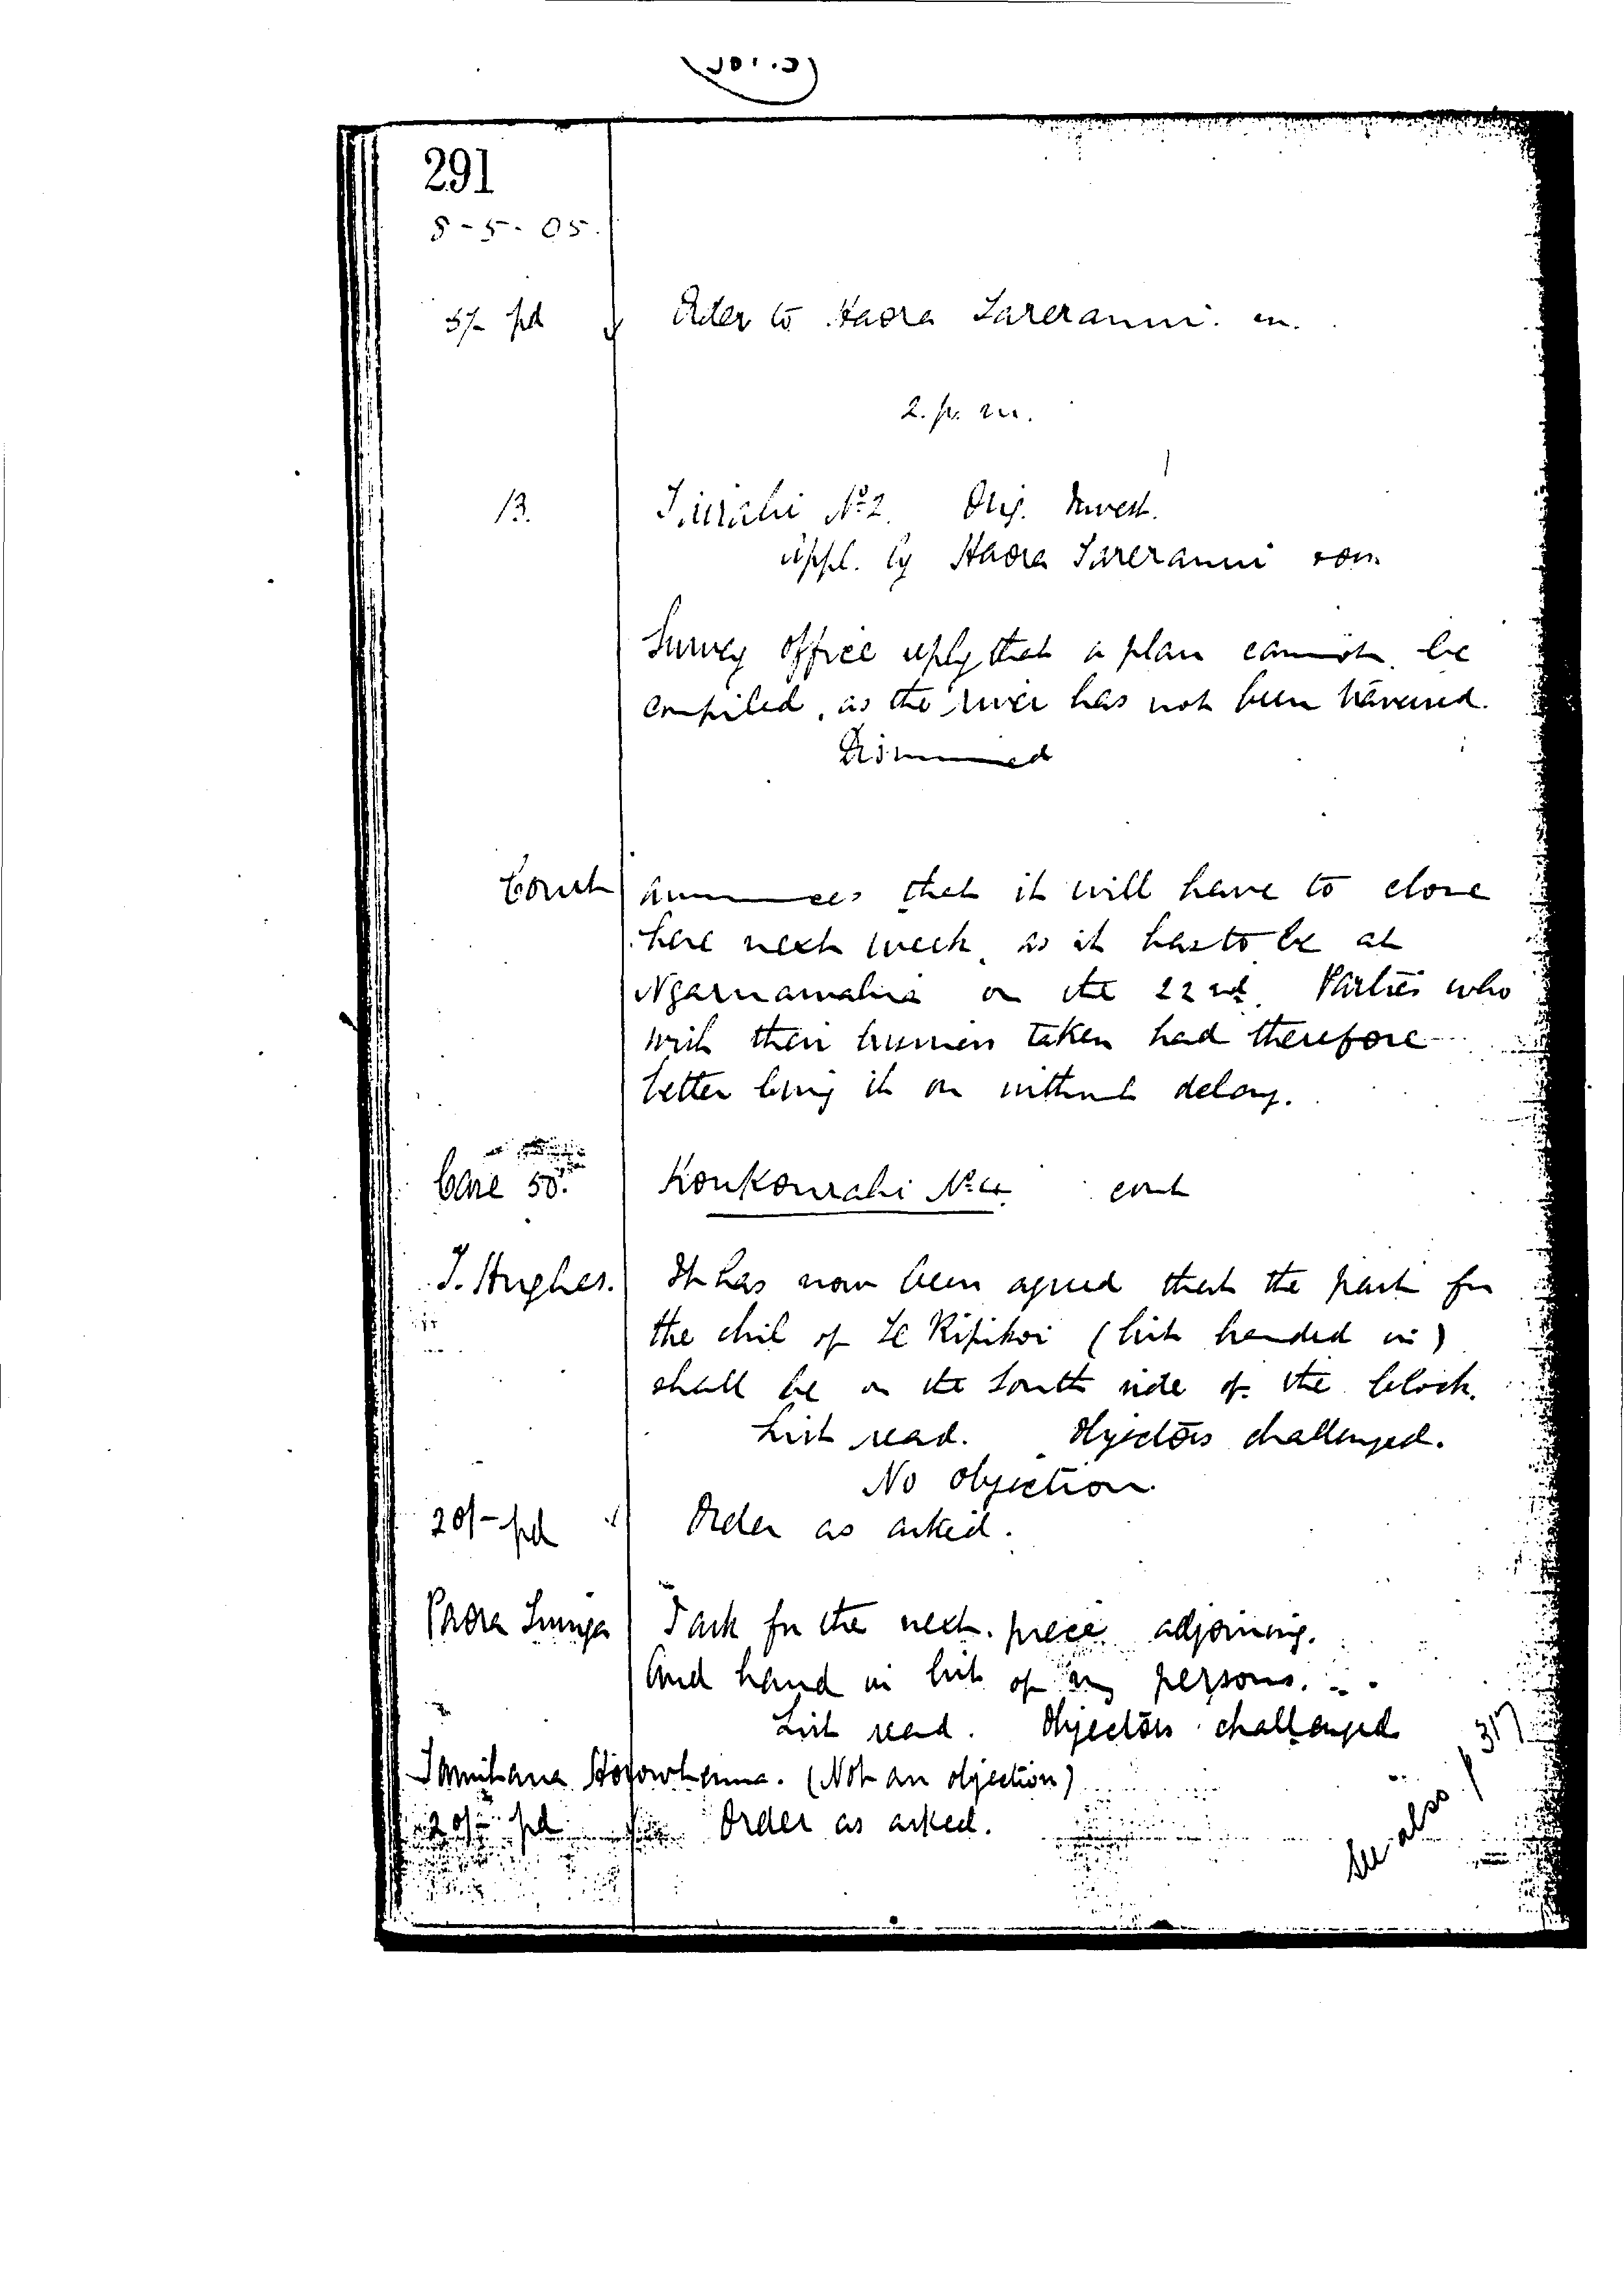 291
8-5-05.
5/- pd Order to Haora Tareranui. m.
2.p.m.
13. No 2. Orig. Invest.
Appl. by Haora Tareranui
Survey office reply that a plan cannot be
compiled, as the river has not been traversed.
Dismissed
Court announces that it will have to close
here next week, as it has to be at
Ngaruawahia on the 22nd. Parties who
wish their business taken had therefore
better bring it on without delay.
Case 50. No 4. cont
T. Hughes. It has now been agreed that the part for
the chil of Te Ripikoi (list handed in)
shall be on the South side of the block.
List read. Objectors challenged.
No objection.
20/- pd Order as asked.
Paora I ask for the next piece adjoining.
And hand in list of my persons.
List read. Objectors challenged
(Not an objection)
20/- pd Order as asked.
See also p 317